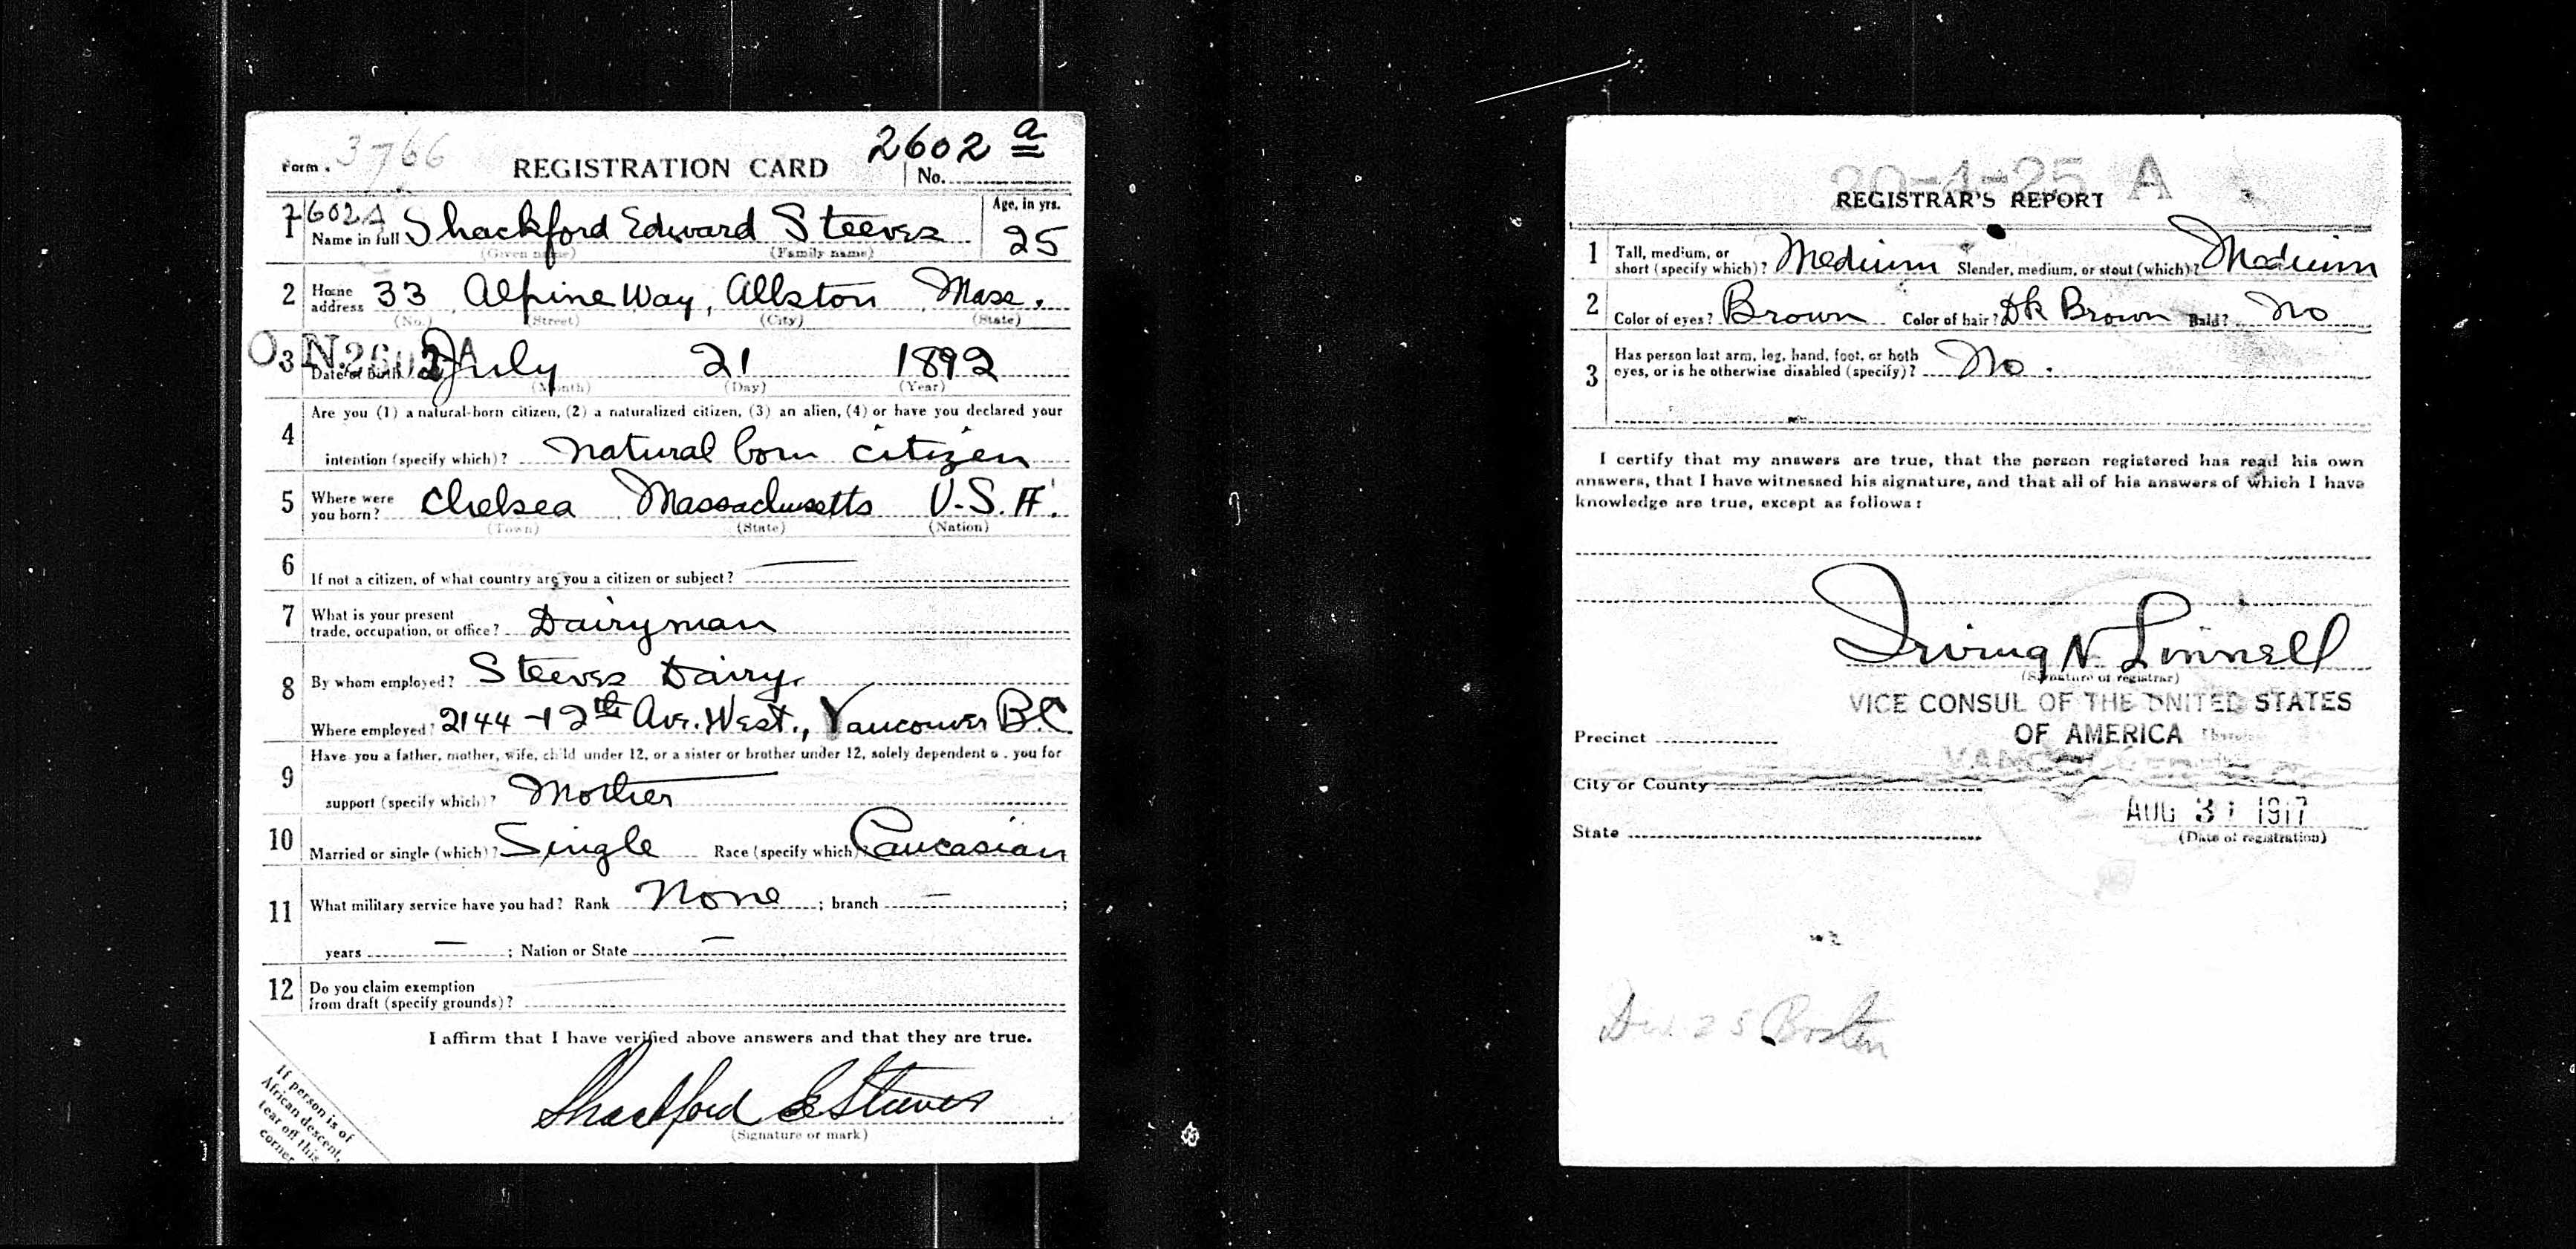 Form 3766 REGISTRATION CARD 2602 a
No.
1 602 A Name in full Shackford Edward Steeves Age, in yrs. 25
(Given name) (Family name)
2 Home address 33 Alpine Way, Allston Mass.
(No.) (Street) (City) (State)
3 O.N. 2602 A Date of birth July 21 1892
(Month) (Day) (Year)
4 Are you (1) a natural-born citizen, (2) a naturalized citizen, (3) an alien, (4) or have you declared your
intention (specify which)? natural born citizen
5 Where were you born? Chelsea Massachusetts U.S.A.
(Town) (State) (Nation)
6 If not a citizen, of what country are you a citizen or subject? —
7 What is your present
trade, occupation, or office? Dairyman
8 By whom employed? Steeves Dairy
Where employed? 2144 - 12th Ave. West., Vancouver B.C.
9 Have you a father, mother, wife, child under 12, or a sister or brother under 12, solely dependent o. you for
support (specify which)? Mother
10 Married or single (which)? Single Race (specify which)? Caucasian
11 What military service have you had? Rank None ; branch — ;
years — ; Nation or State —
12 Do you claim exemption
from draft (specify grounds)?
I affirm that I have verified above answers and that they are true.
Shackford E Steeves
(Signature or mark)
If person is of
African descent,
tear off this
corner
20-4-25 A
REGISTRAR'S REPORT
1 Tall, medium, or
short (specify which)? Medium Slender, medium, or stout (which)? Medium
2 Color of eyes? Brown Color of hair? Dk Brown Bald? No
3 Has person lost arm, leg, hand, foot, or both
eyes, or is he otherwise disabled (specify)? No.
I certify that my answers are true, that the person registered has read his own
answers, that I have witnessed his signature, and that all of his answers of which I have
knowledge are true, except as follows:
Irving N. Linnell
(Signature of registrar)
VICE CONSUL OF THE UNITED STATES
OF AMERICA
Precinct
City or County
State
AUG 31 1917
(Date of registration)
25 Boston